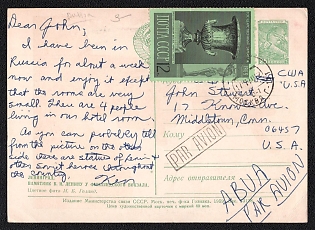 Dear John,
I have been in
Russia for about a week
now and enjoy it except
that the rooms are very
small. There are 4 people
living in our hotel room.
As you can probably tell
from the picture on the other
side there are statues of Lenin &
other Soviet heroes throughout
the country.
Ken
ПОЧТА СССР
12
США
USA
John Stewart
17 Knox
Middletown, Conn.
06457
U.S.A.
Кому
PAR AVION
Адрес отправителя
АВИА
PAR AVION
ЛЕНИНГРАД
ПАМЯТНИК В. И. ЛЕНИНУ У ФИНЛЯНДСКОГО ВОКЗАЛА.
Цветное фото И. Б. Голанд
Издание Министерства связи СССР.